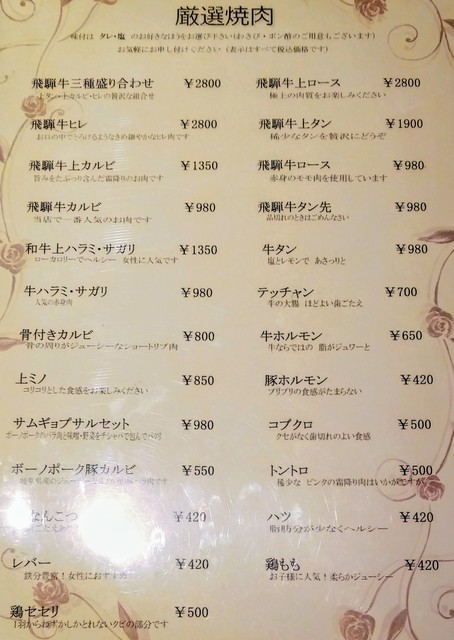 厳選焼肉
味付は タレ・塩 のお好きなほうをお選び下さい(わさび・ポン酢のご用意もございます)
お気軽にお申し付けください (表示はすべて税込価格です)
飛騨牛三種盛り合わせ ￥2800
上タン・上カルビ・ヒレの贅沢な組合せ
飛騨牛上ロース ￥2800
極上の肉質をお楽しみください
飛騨牛ヒレ ￥2800
お口の中でとろけるようなきめ細やかなヒレ肉です
飛騨牛上タン ￥1900
稀少なタンを贅沢にどうぞ
飛騨牛上カルビ ￥1350
旨みをたっぷり含んだ霜降りのお肉です
飛騨牛ロース ￥980
赤身のモモ肉を使用しています
飛騨牛カルビ ￥980
当店で一番人気のお肉です
飛騨牛タン先 ￥980
品切れのときはごめんなさい
和牛上ハラミ・サガリ ￥1350
ローカロリーでヘルシー 女性に人気です
牛タン ￥980
塩とレモンで あさっりと
牛ハラミ・サガリ ￥980
人気の赤身肉
テッチャン ￥700
牛の大腸 ほどよい歯ごたえ
骨付きカルビ ￥800
骨の周りがジューシーなショートリブ肉
牛ホルモン ￥650
牛ならではの 脂がジュワーと
上ミノ ￥850
コリコリとした食感をお楽しみください
豚ホルモン ￥420
プリプリの食感がたまらない
サムギョプサルセット ￥980
ボーノポークのバラ肉と味噌・野菜をチシャバで包んでパクリ
コブクロ ￥500
クセがなく歯切れのよい食感
ボーノポーク豚カルビ ￥550
トントロ ￥500
稀少な ピンクの霜降り肉はいかがですか
なんこつ ￥420
ハツ ￥420
脂肪分が少なくヘルシー
レバー ￥420
鉄分豊富！女性におすすめ
鶏もも ￥420
お子様に人気！柔らかジューシー
鶏セセリ ￥500
1羽からわずかしかとれないクビの部分です